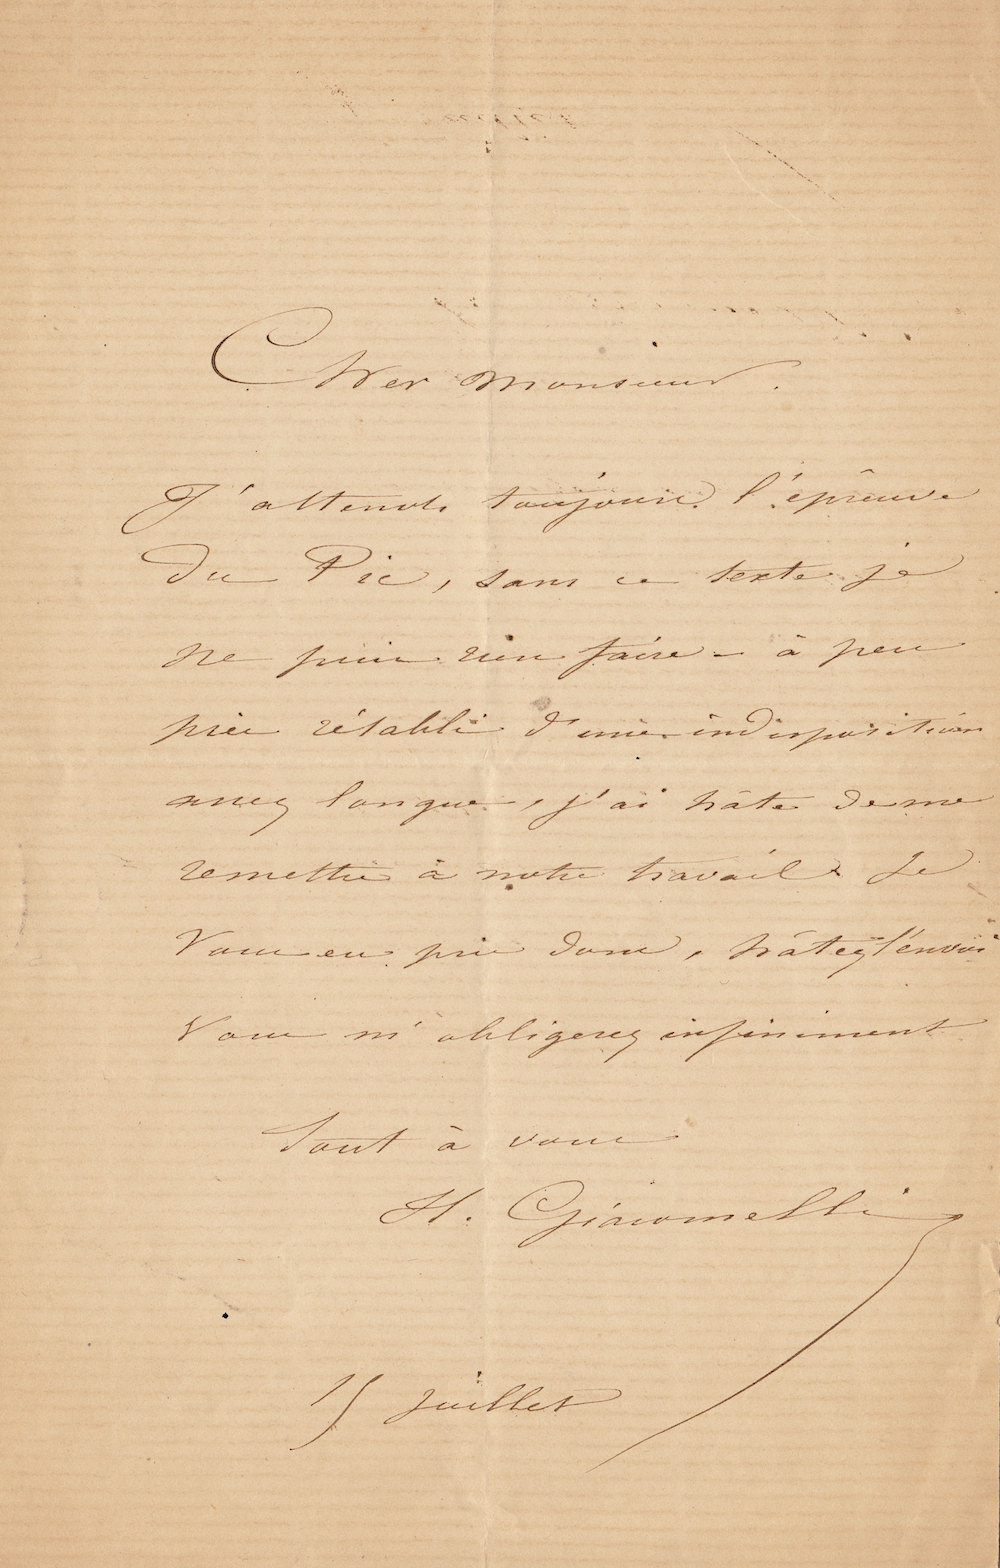 Cher Monsieur.
J'attends toujours l'épreuve
du Pic, sans ce texte je
ne puis rien faire – à peu
près rétabli d'une indisposition
assez longue, j'ai hâte de me
remettre à notre travail. Je
vous en prie donc, hâtez l'envoi
vous m'obligerez infiniment
Tout à vous
H. Giacomelli
15 juillet